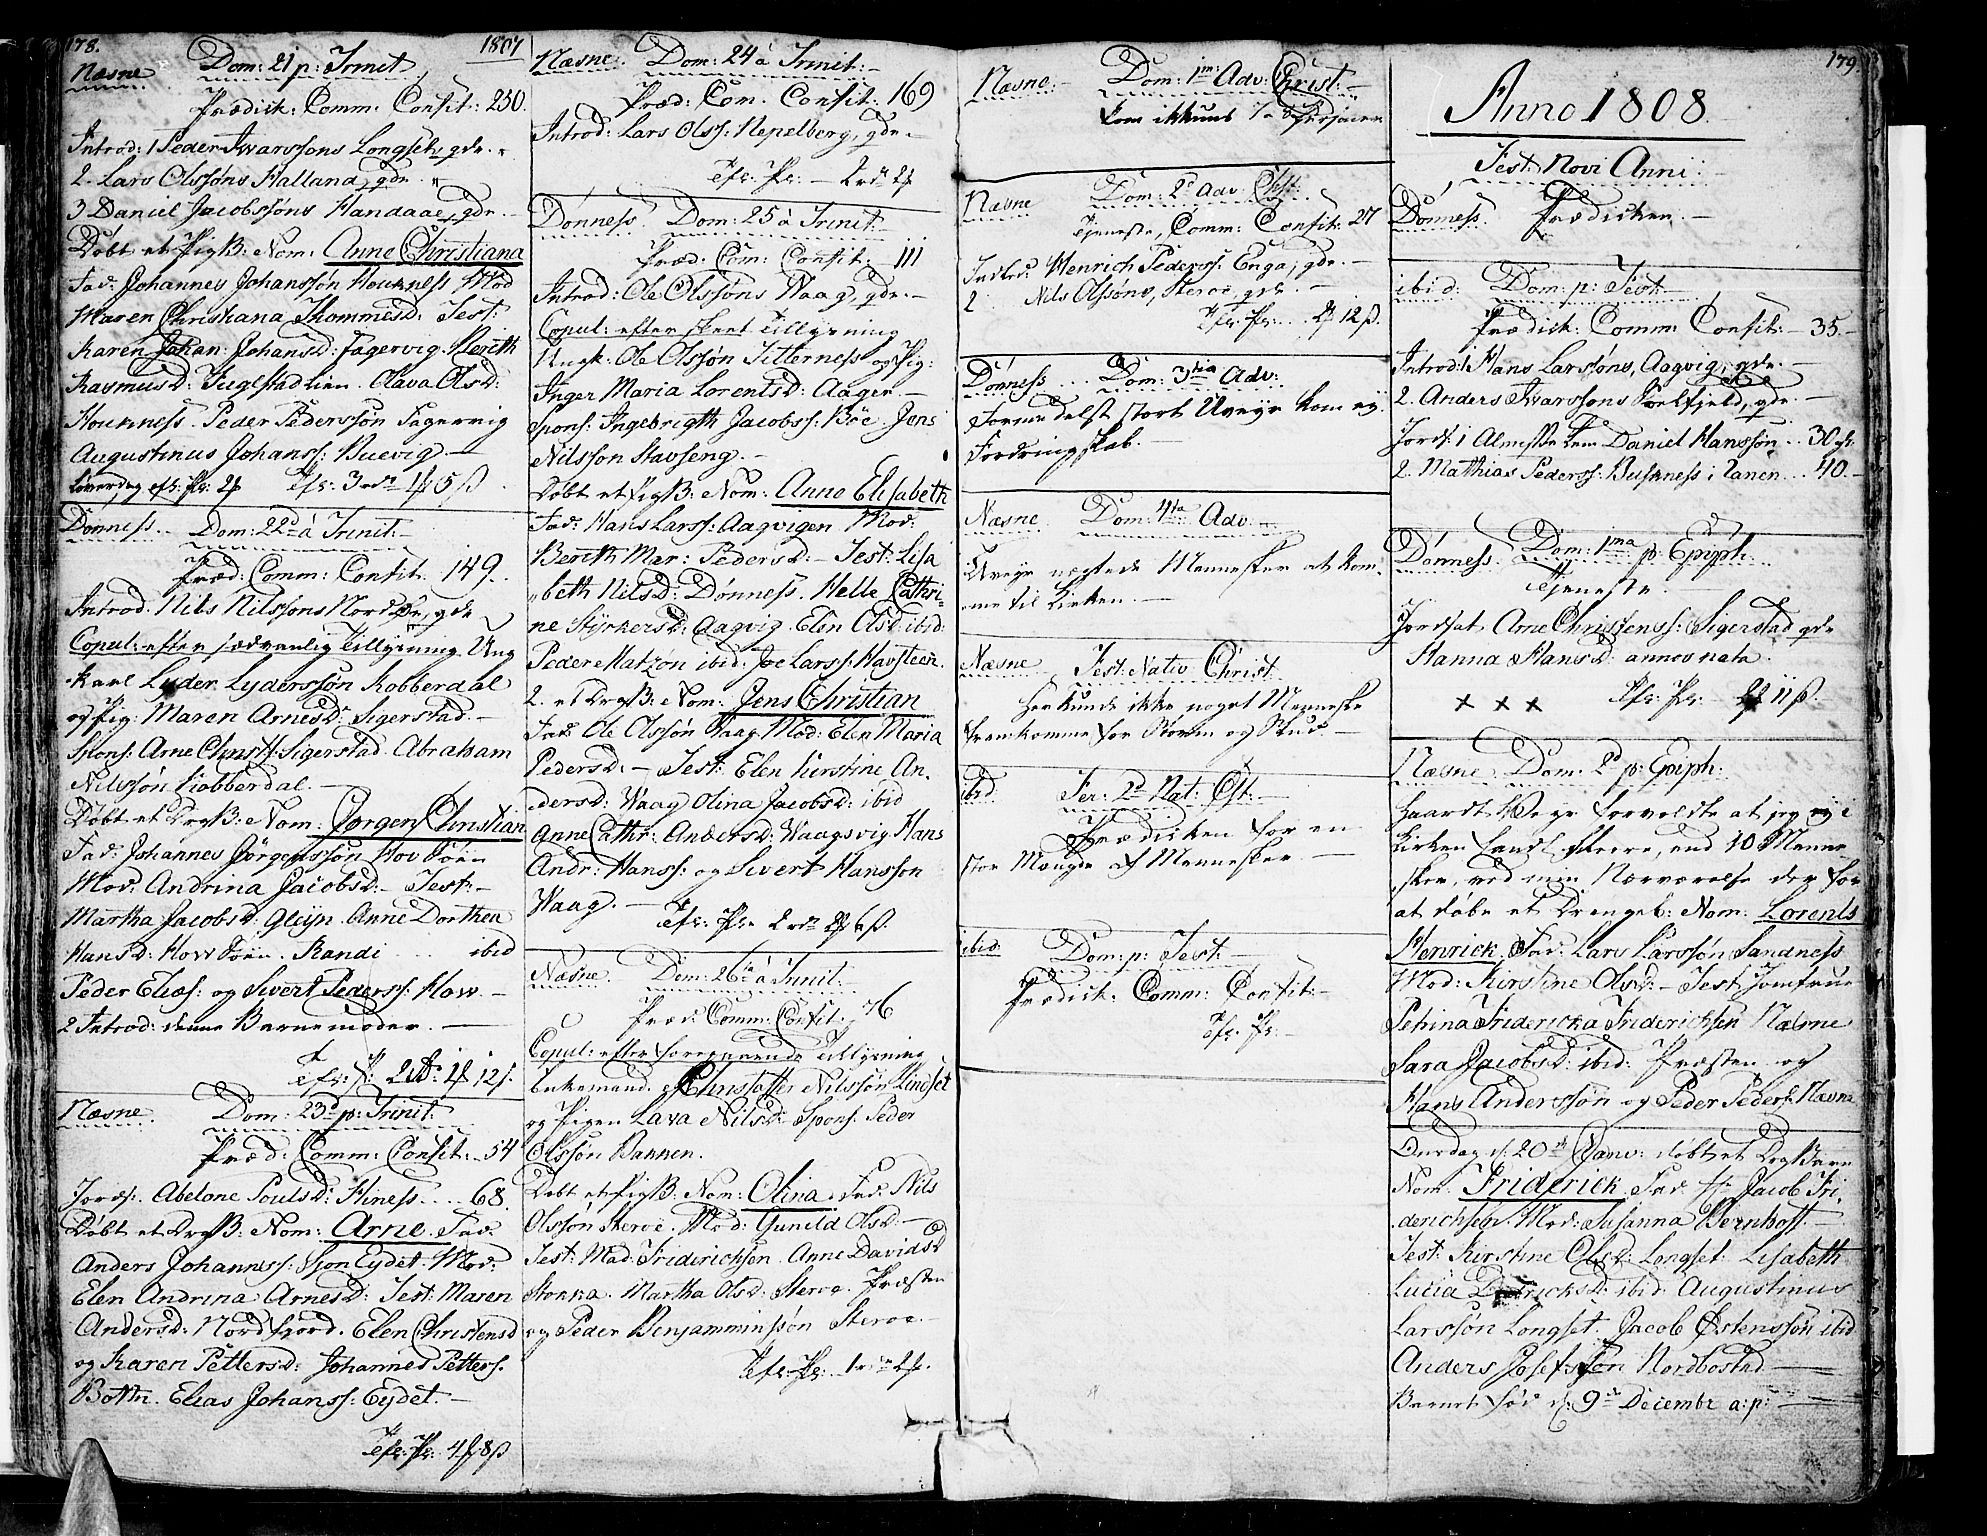 178.
1807
Næsne Dom: 21 p: Trinit
Prædik: Comm: Confit: 230.
Introd: 1 Peder Iwarssøns Longset gde.
2. Lars Olssøns Halland, gde
3 Daniel Jacobssøns Handaae, gde
Døbt et Pigb: Nom: Anne Christiana
Fad: Johannes Johanssøn Houkness Mod
Maren Christiana Thommesd: Test:
Karen Johan: Johansd: Fagervig. Berith
Rasmusd: Inglstadlien. Olava Olsd:
Houkness. Peder Pederssøn Fagervig
Augustinus Johanss: Buevig.
Løverdag 3 rd 5 ß
Dønness. Dom: 22d à Trinit:
Præd: Comm: Confit: 149.
Introd: Nils Nilssøns Nordøe, gde
Copul: efter sædvanlig Tillysning Ung
karl Lyder Lyderssøn Kobberdal
og Pig: Maren Arnesd: Sigerstad.
Spons: Arne Christs: Sigerstad. Abraham
Nilssøn Kobberdal.
Døbt et Drgb: Nom: Jørgen Christian
Fad: Johannes Jörgenssøn Hov
Mod: Andrina Jacobsd: Test:
Martha Jacobsd: Glein. Anne Dorthea
Hansd: Randi ibid
Peder Elias: og Sivert Pederss: Kow
2 Introd: denne Barnemoder.
12 ß.
Næsne. Dom: 23d p: Trinit:
Præd: Comm: Confit: 54
Jords: Abelone Poulsd: Hiness 68.
Døbt et Drgb: Nom: Arne. Fad:
Anders Johanness: Sion Eydet. Mod:
Elen Andrina Arnesd: Test: Maren
Andersd: Nordfiord. Elen Christensd
og Karen Pettersd: Johannes Petters.
Botn. Elias Johanss: Eydet.
Tfr: Pr: 8ß
Næsne. Dom: 24 à Trinit:
Præd: Com. Confit: 169
Introd: Lars Olss: Nepelberg, gde.
Tfr: Pr:
Dønness. Dom: 25 à Trinit:
Præd: Com: Confit: 111
Introd: Ole Olssøns Waag, gde.
Copul: efter skeet tillysning
Ungk: Ole Olssøn Titterness og Pig:
Inger Maria Lorentsd: Aager
Spons: Ingebrigth Jacobss: Böe. Jens
Nilssøn Stavseng.
Døbt et Pigb: Nom: Anne Elisabeth
Fad: Hans Larss: Aagvigen Mod:
Berith Mar: Pedersd: Test: Lisa
beth Nilsd: Dønness. Helle Cathri-
ne Styrkersd: Aagvig. Elen Olsd: ibid:
Peder Matzøn ibid: Joe Larss: Havsteen.
2. et Drgb: Nom: Jens Christian
Fad: Ole Olssøn Waag Mod: Elen Maria
Pedersd: Test: Elen Kirstine An-
dersd: Waag Olina Jacobsd: ibid
Anne Cathr: Andersd: Waagsvig Hans
Andr: Hanss: og Sivert Hanssøn
Waag.
Tfr: Pr: 6 ß.
Næsne Dom: 26 à Trinit:
Præd: Comm: Confit: 76
Copul: efter foregaaende tillysning
Enkemand Christopher Nilssøn Lindset
og Pigen Lava Nilsd: Spons: Peder
Olssøn Bakken.
Døbt et Pigb: Nom: Olina. Fad: Nils
Olssøn Steroe. Mod: Gunild Olsd:
Test: Mad: Friderichsen. Anne Davidsd
Stokka. Martha Olsd: Steroe. Præsten
og Peder Benjaminssøn Steroe.
Tfr: Pr:
Næsne. Dom: 1m Adv: Christ:
kom ikkuns 7 a 8 Personer
Næsne Dom: 2d Adv: Chst:
Tjeneste, Comm: Confit: 27
Introd: Henrich Pederss: Enga, gde.
2. Nils Olssøns, Steroe, gde.
Tfr: Pr: 12 ß.
Dønness Dom: 3tia Adv:
Formedelst stort Uveyr kom ey
Fordringskab.
Næsne Dom: 4ta Adv:
Uveyr nægtede Mennesker at kom-
me til Kirken.
Næsne Fest: Nativ Christ
Her kunde ikke noget Menneske
fremkomme for Storm og Snue
ibid. Fer: 2d Nat: Chst:
Prædicken for en
stor Mængde af Mennesker.
ibid: Dom: p: Fest:
Prædick: Comm: Confit:
Tfr: Pr:
179.
Anno 1808
Fest: Novi Anni:
Dønness. Prædicken.
ibid: Dom: p: Fest:
Prædick: Comm: Confit: 35.
Introd: 1 Hans Larssøns, Aagvig, gde.
2. Anders Iwarssøns gde.
Jords: 1 Almisse Lem Daniel Hanssøn 30
2. Mathias Pederss: Buskness i Ranen 40.
Dønness Dom: 1ma p: Epiph:
Tjeneste.
Jordsat Arne Christenss: Sigerstad gde
Hanna Hansd: annos nata
x x x Tfr: Pr: 11 ß.
Næsne Dom: 2d p: Epiph:
haardt Veyr forvoldte at jeg ey i
Kirken fandt fleere, end 10 Menne
sker, ved min Nærværelse der for
at døbe et Drengeb: Nom: Lorents
Henrick, Fad: Lars Larssøn Sandness
Mod: Kirstine Olsd: Test: Jomfrue
Petrina Fridericka Friderichsen Næsne
Sara Jacobsd: ibid: Præsten og
Hans Anderssøn og Peder Peders: Næsne
Onsdag d: 20 Janv: døbt et Drgbarn
Nom: Friderick Fad: Hr: Jacob Fri-
derichsen. Mod: Susanna Bernhoft.
Test: Kirstine Olsd: Longset. Lisabeth
Lucia ibid: Augustinus
Larssøn Longset. Jacob Østenssøn ibid
Anders Josefssøn Nordbostad
Barnet fød d: 9de Decembr a: p: